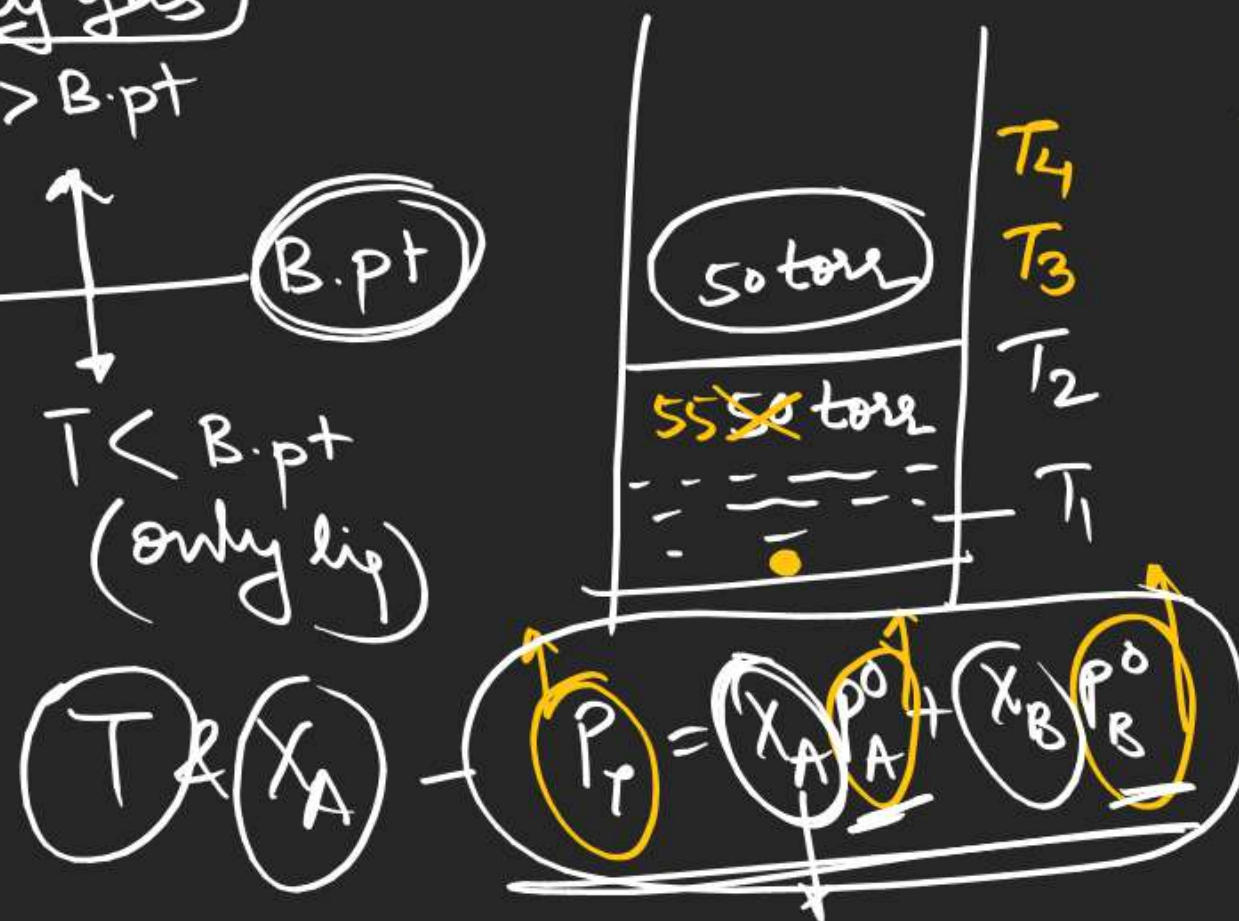 > B.pt
B.pt
T < B.pt
(only liq)
50 torr
55 50 torr
T4
T3
T2
T1
T & XA - PT = XA P°A + XB P°B